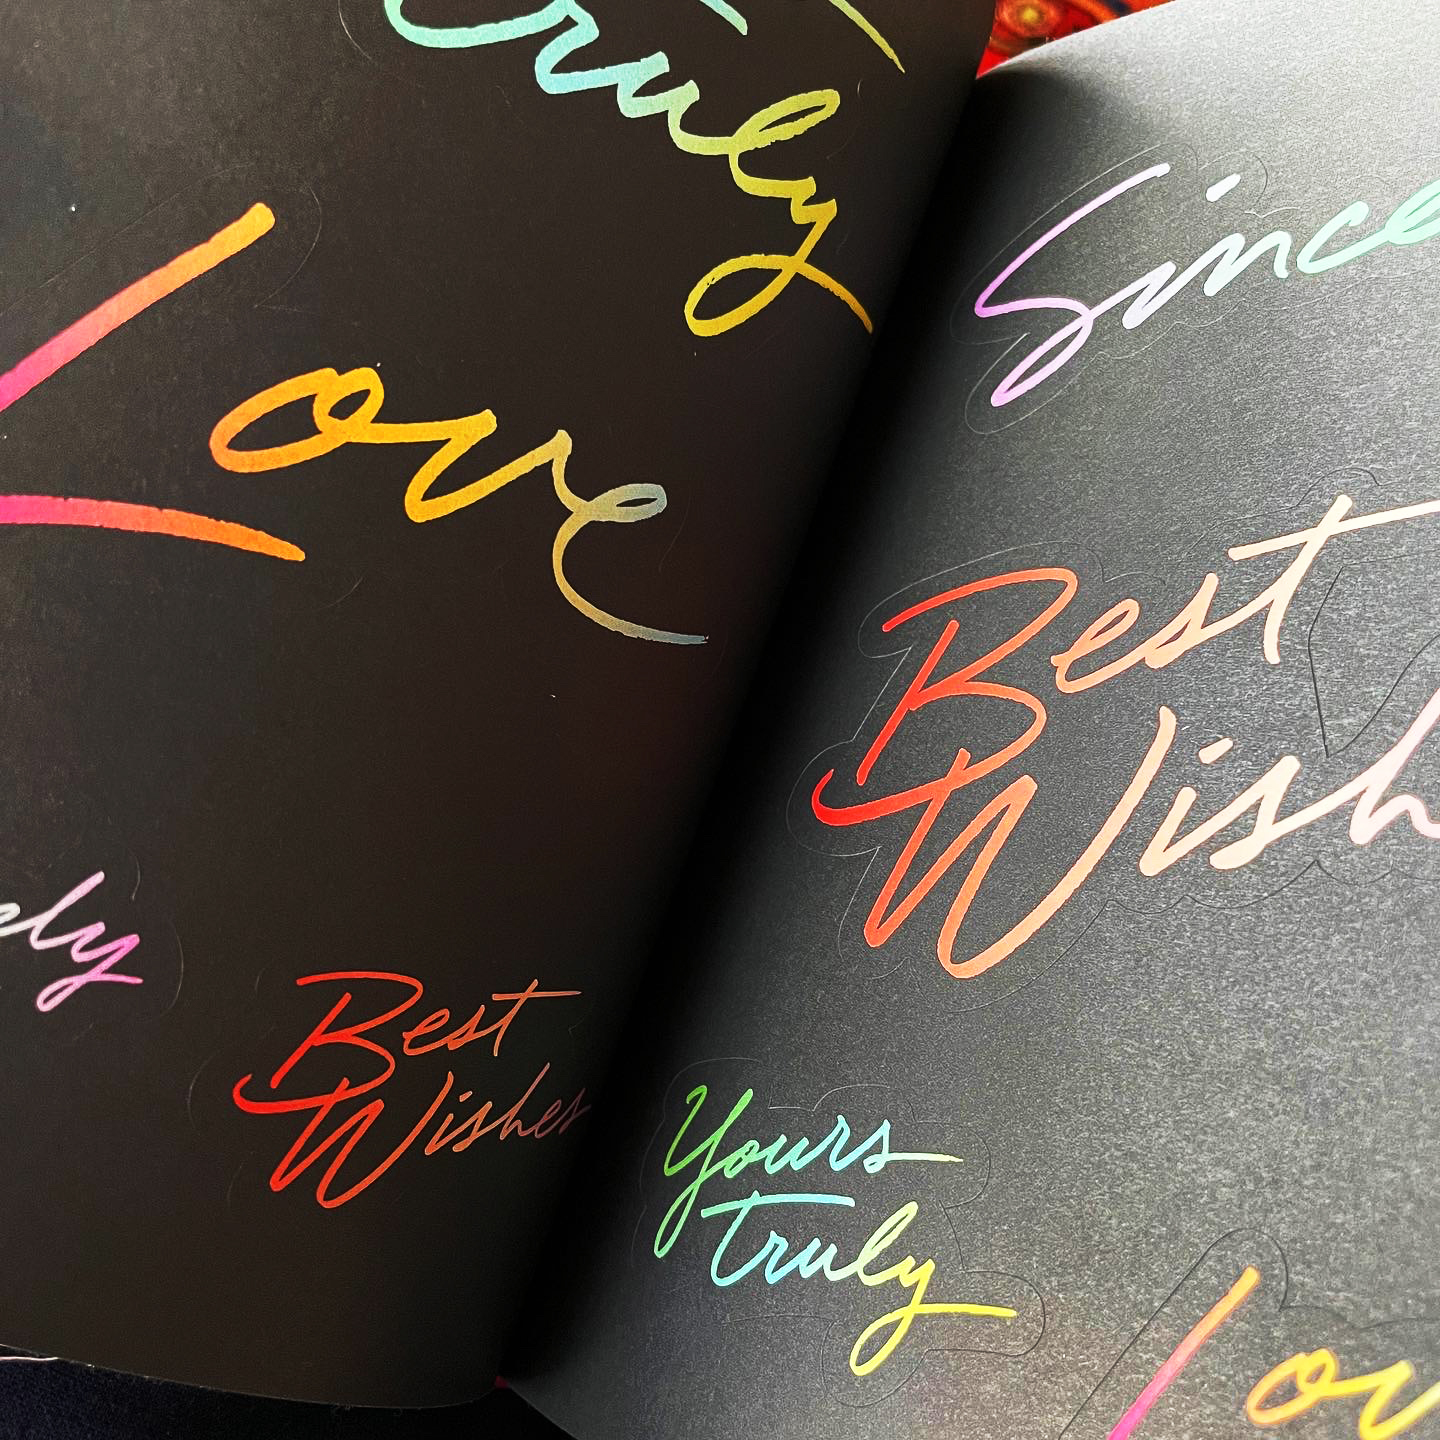 truly
Love
ely
Best
Wishes
Since
Best
Wish
Yours
truly
Lov